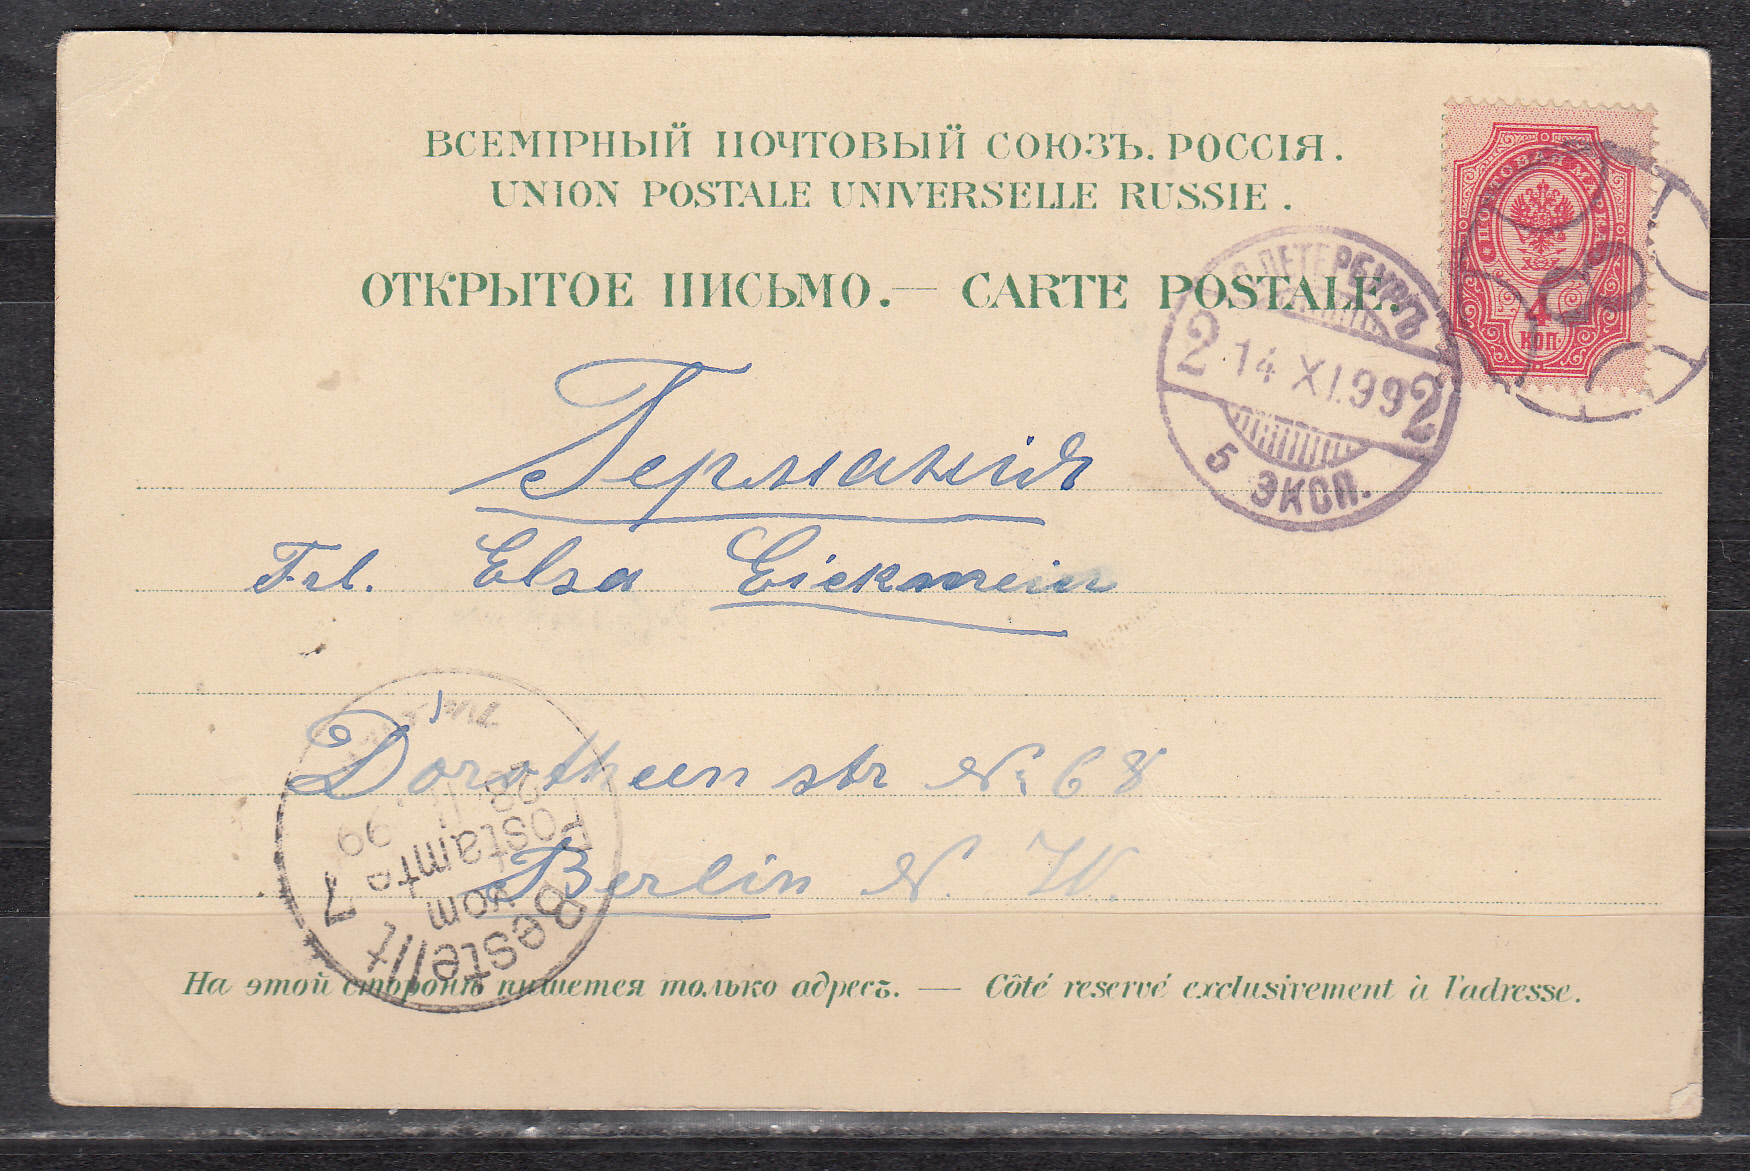 ВСЕМІРНЫЙ ПОЧТОВЫЙ СОЮЗЪ. РОССІЯ.
UNION POSTALE UNIVERSELLE RUSSIE.
ОТКРЫТОЕ ПИСЬМО. — CARTE POSTALE.
ПОЧТОВАЯ МАРКА
4
КОП.
С. ПЕТЕРБУРГЪ
2 14 XI.99 2
5 ЭКСП.
Германія
Frl. Elsa Eickmein
Dorotheenstr № 68
Berlin N. W.
Bestellt
vom
Postamte 7
28 11 99
На этой сторонѣ пишется только адресъ. — Côté reservé exclusivement à l'adresse.